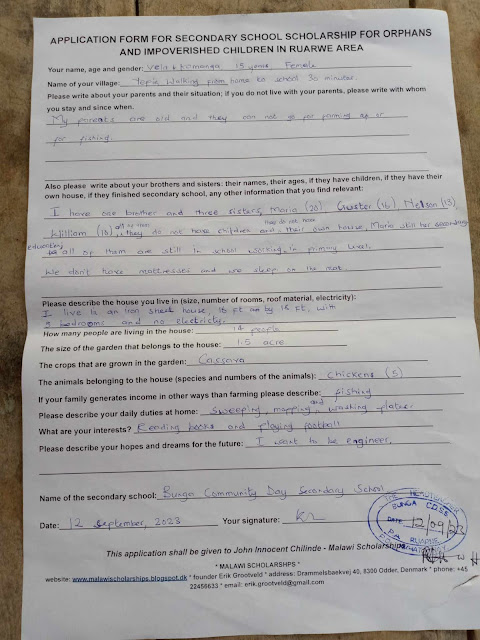 APPLICATION FORM FOR SECONDARY SCHOOL SCHOLARSHIP FOR ORPHANS
AND IMPOVERISHED CHILDREN IN RUARWE AREA
Your name, age and gender: 15 years Female
Name of your village: walking from home to school 30 minutes.
Please write about your parents and their situation; if you do not live with your parents, please write with whom
you stay and since when.
My parents are old and they can not go for farming or
for fishing.
Also please write about your brothers and sisters: their names, their ages, if they have children, if they have their
own house, if they finished secondary school, any other information that you find relevant:
I have one brother and three sisters, Maria (20) (16) Nelson (13)
they do not have
William (10) all of them they do not have children and their own house, Maria her secondary
education
all of them are still in school working in primary level.
We don't have mattresses and we sleep on the mat.
Please describe the house you live in (size, number of rooms, roof material, electricity):
I live in an iron sheet house, 16 ft by 14 ft, with
3 bedrooms and no electricity.
How many people are living in the house: 14 people
The size of the garden that belongs to the house: 1.5 acre
The crops that are grown in the garden: Cassava
The animals belonging to the house (species and numbers of the animals): Chickens (5)
If your family generates income in other ways than farming please describe: fishing
Please describe your daily duties at home: sweeping, mopping and washing plates
What are your interests? Reading books and playing football
Please describe your hopes and dreams for the future: I want to be engineer.
Name of the secondary school: Bunga Community Day Secondary School
Date: 12 September, 2023 Your signature:
THE HEADTEACHER
BUNGA C.D.S.S
DATE 12/09/23
RUARWE
This application shall be given to John Innocent Chilinde - Malawi Scholarships
* MALAWI SCHOLARSHIPS *
website: www.malawischolarships.blogspot.dk * founder Erik Grootveld * address: Drammelsbaekvej 40, 8300 Odder, Denmark * phone: +45
22456633 * email: erik.grootveld@gmail.com